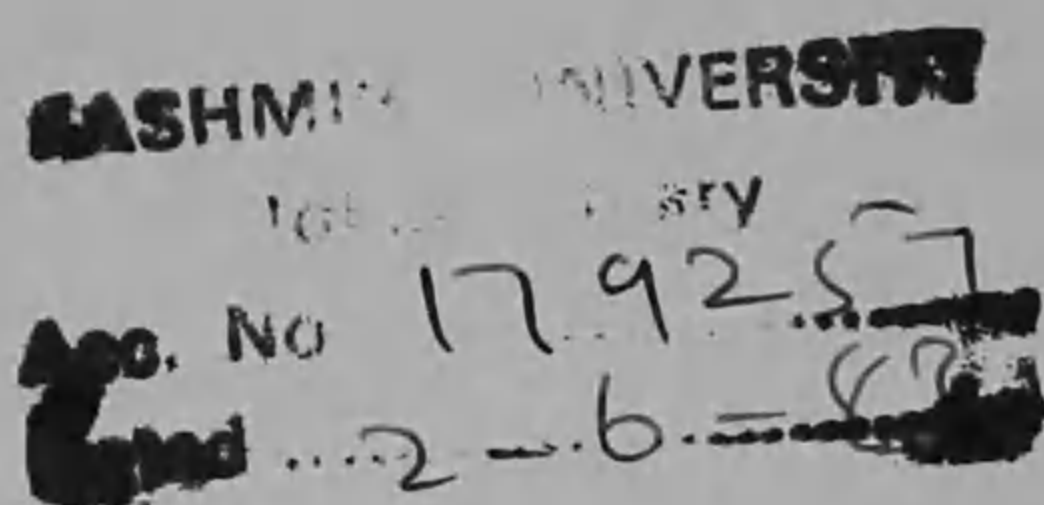 KASHMIR UNIVERSITY
Acc. No 179257
2-6-83